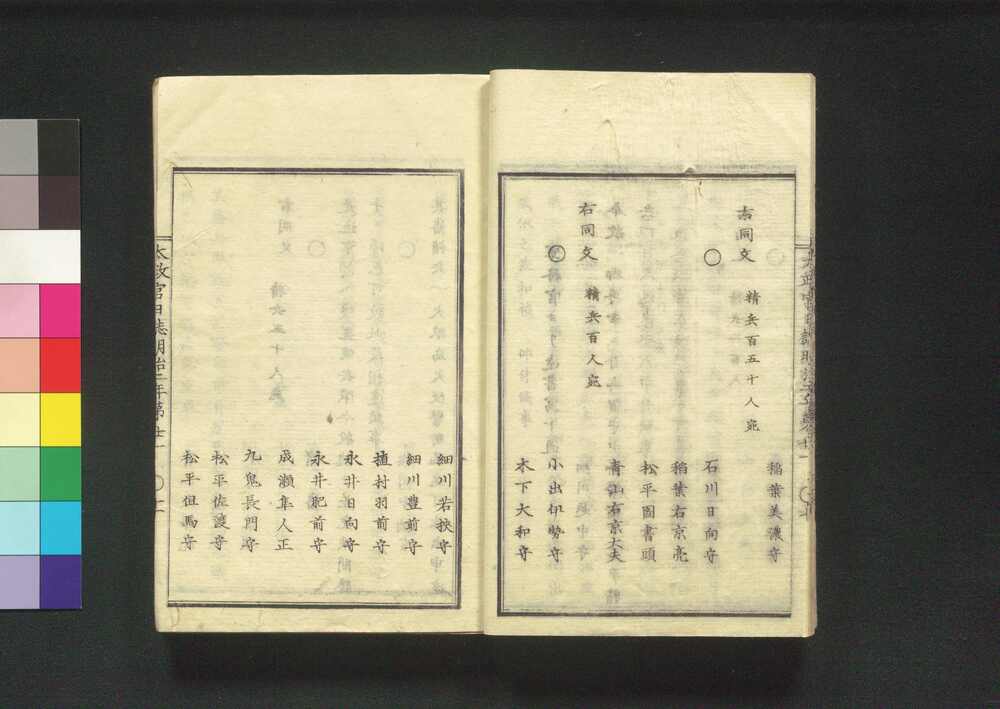 稲葉美濃守
右同文 精兵百五十人宛
○
石川日向守
稲葉右京亮
松平図書頭
青山右京大夫
右同文 精兵百人宛
○
小出伊勢守
木下大和守
細川若狭守
細川豊前守
植村羽前守
永井日向守
永井肥前守
成瀬隼人正
九鬼長門守
松平佐渡守
松平但馬守
太政官日誌明治二年第廿一